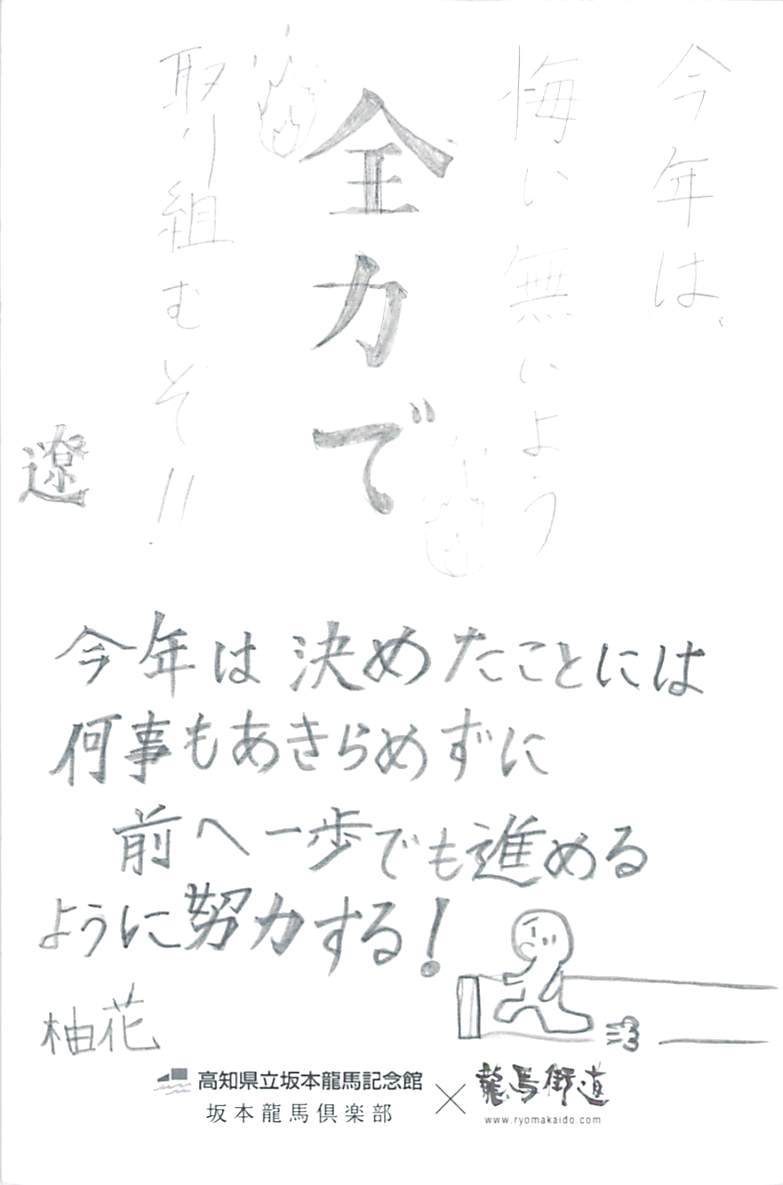 今年は、
悔い無いよう
全力で
取り組むぞ!!
遼
今年は決めたことには
何事もあきらめずに
前へ一歩でも進める
ように努力する!
柚花
高知県立坂本龍馬記念館
坂本龍馬倶楽部
×
龍馬街道
www.ryomakaido.com